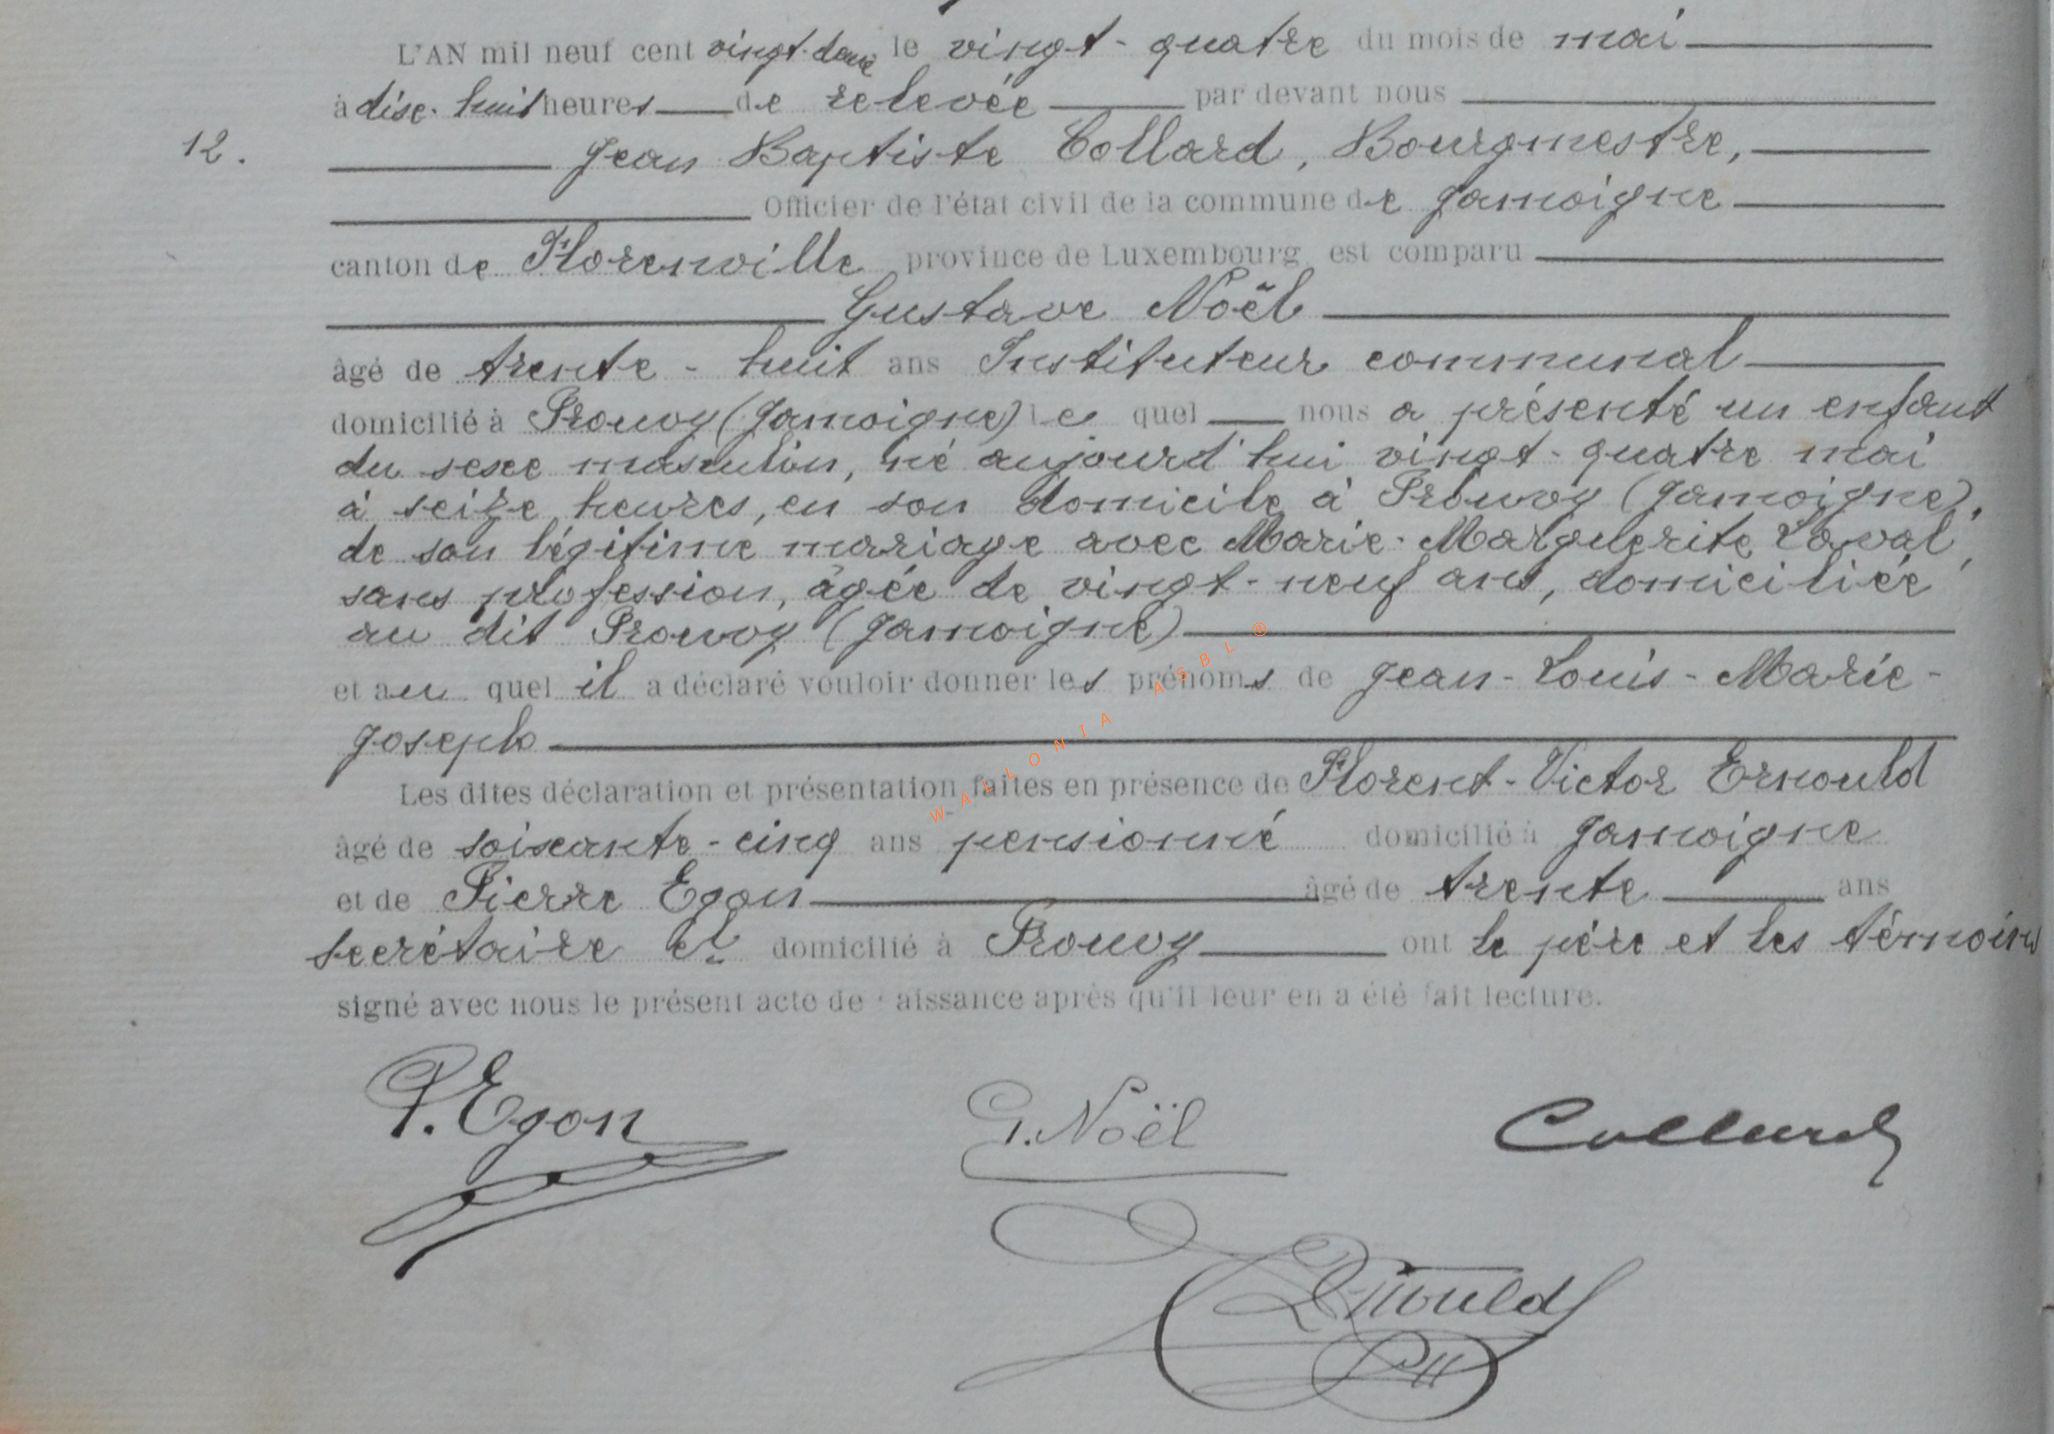 L'AN mil neuf cent vingt-deux le vingt-quatre du mois de mai
à dix-huit heures de relevée par devant nous
12. Jean Baptiste Collard, Bourgmestre,
Officier de l'état civil de la commune de Jamoigne
canton de Florenville province de Luxembourg est comparu
Gustave Noël
âgé de trente-huit ans Instituteur communal
domicilié à Prouvy (Jamoigne) le quel nous a présenté un enfant
du sexe masculin, né aujourd'hui vingt-quatre mai
à seize heures, en son domicile à Prouvy (Jamoigne),
de son légitime mariage avec Marie-Marguerite Laval,
sans profession, âgée de vingt-neuf ans, domiciliée
au dit Prouvy (Jamoigne)
et au quel il a déclaré vouloir donner les prénoms de Jean-Louis-Marie-
Joseph
Les dites déclaration et présentation faites en présence de Florent-Victor Ernould
âgé de soixante-cinq ans pensionné domicilié à Jamoigne
et de Pierre Egon âgé de trente ans
secrétaire cl domicilié à Prouvy ont le père et les témoins
signé avec nous le présent acte de naissance après qu'il leur en a été fait lecture.
WALLONIA ASBL ®
P. Egon G. Noël Collard
Ernould